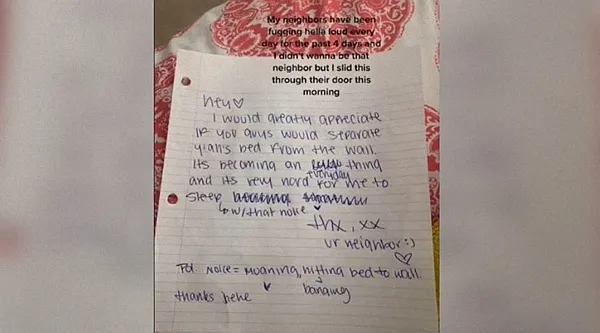 My neighbors have been
fugging hella loud every
day for the past 4 days and
I didn't wanna be that
neighbor but I slid this
through their door this
morning
Hey♡
I would greatly appreciate
if you guys would separate
y'alls bed from the wall.
Its becoming an everyday thing
and its very hard for me to
sleep
↳ w/ that noise
thx, xx
ur neighbor :)
♡
Noise = moaning, hitting bed to wall.
banging
thanks behe